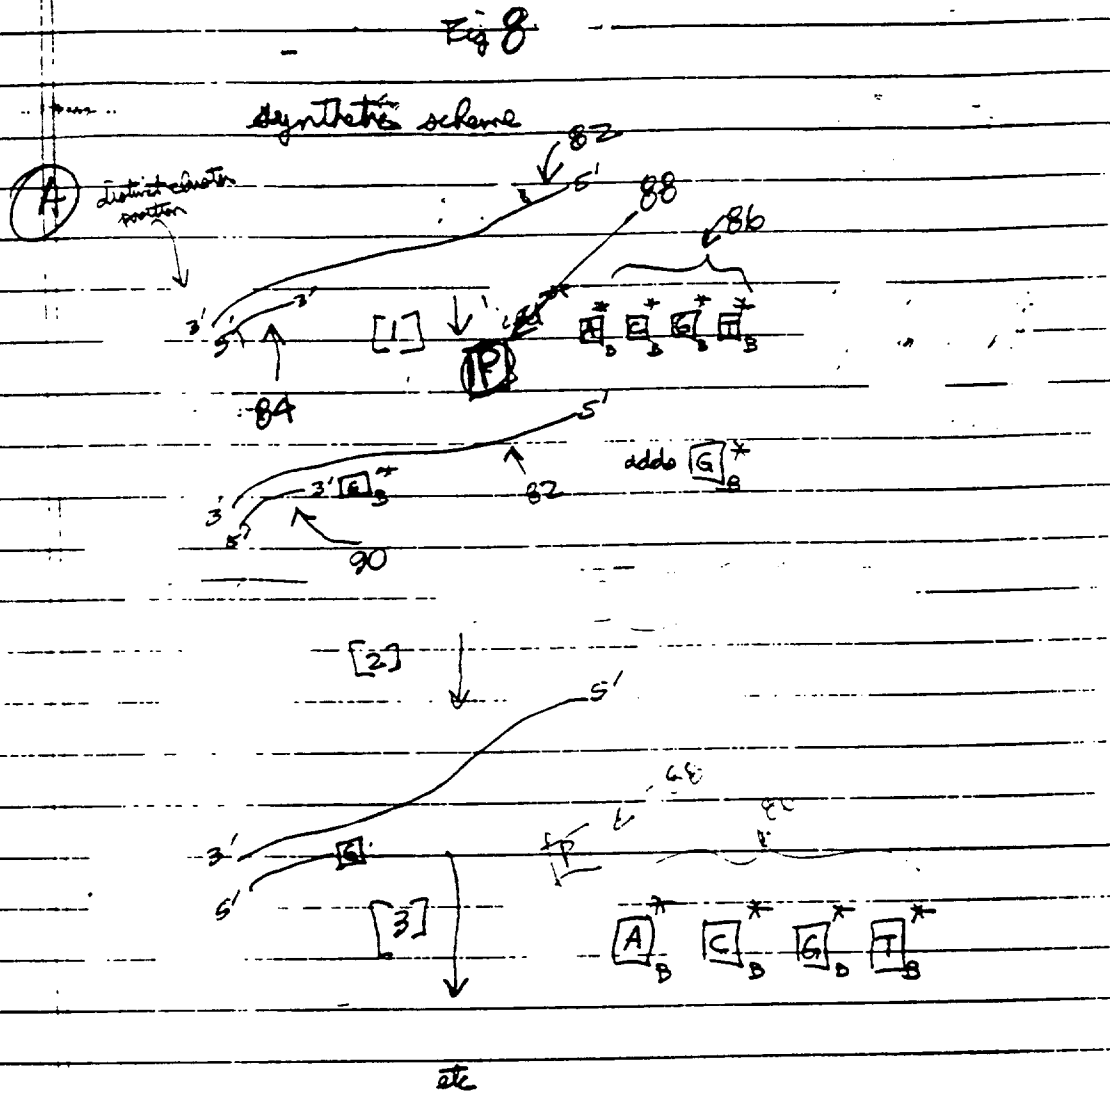 Fig 8
synthetic scheme
82
A
distinct cluster
position
5'
88
86
3'
3'
5'
[1]
P
A*B C*B G*B T*B
84
5'
adds G*B
3' G*B
82
3'
5'
90
[2]
5'
3'
G
P
5'
[3]
A*B C*B G*B T*B
etc